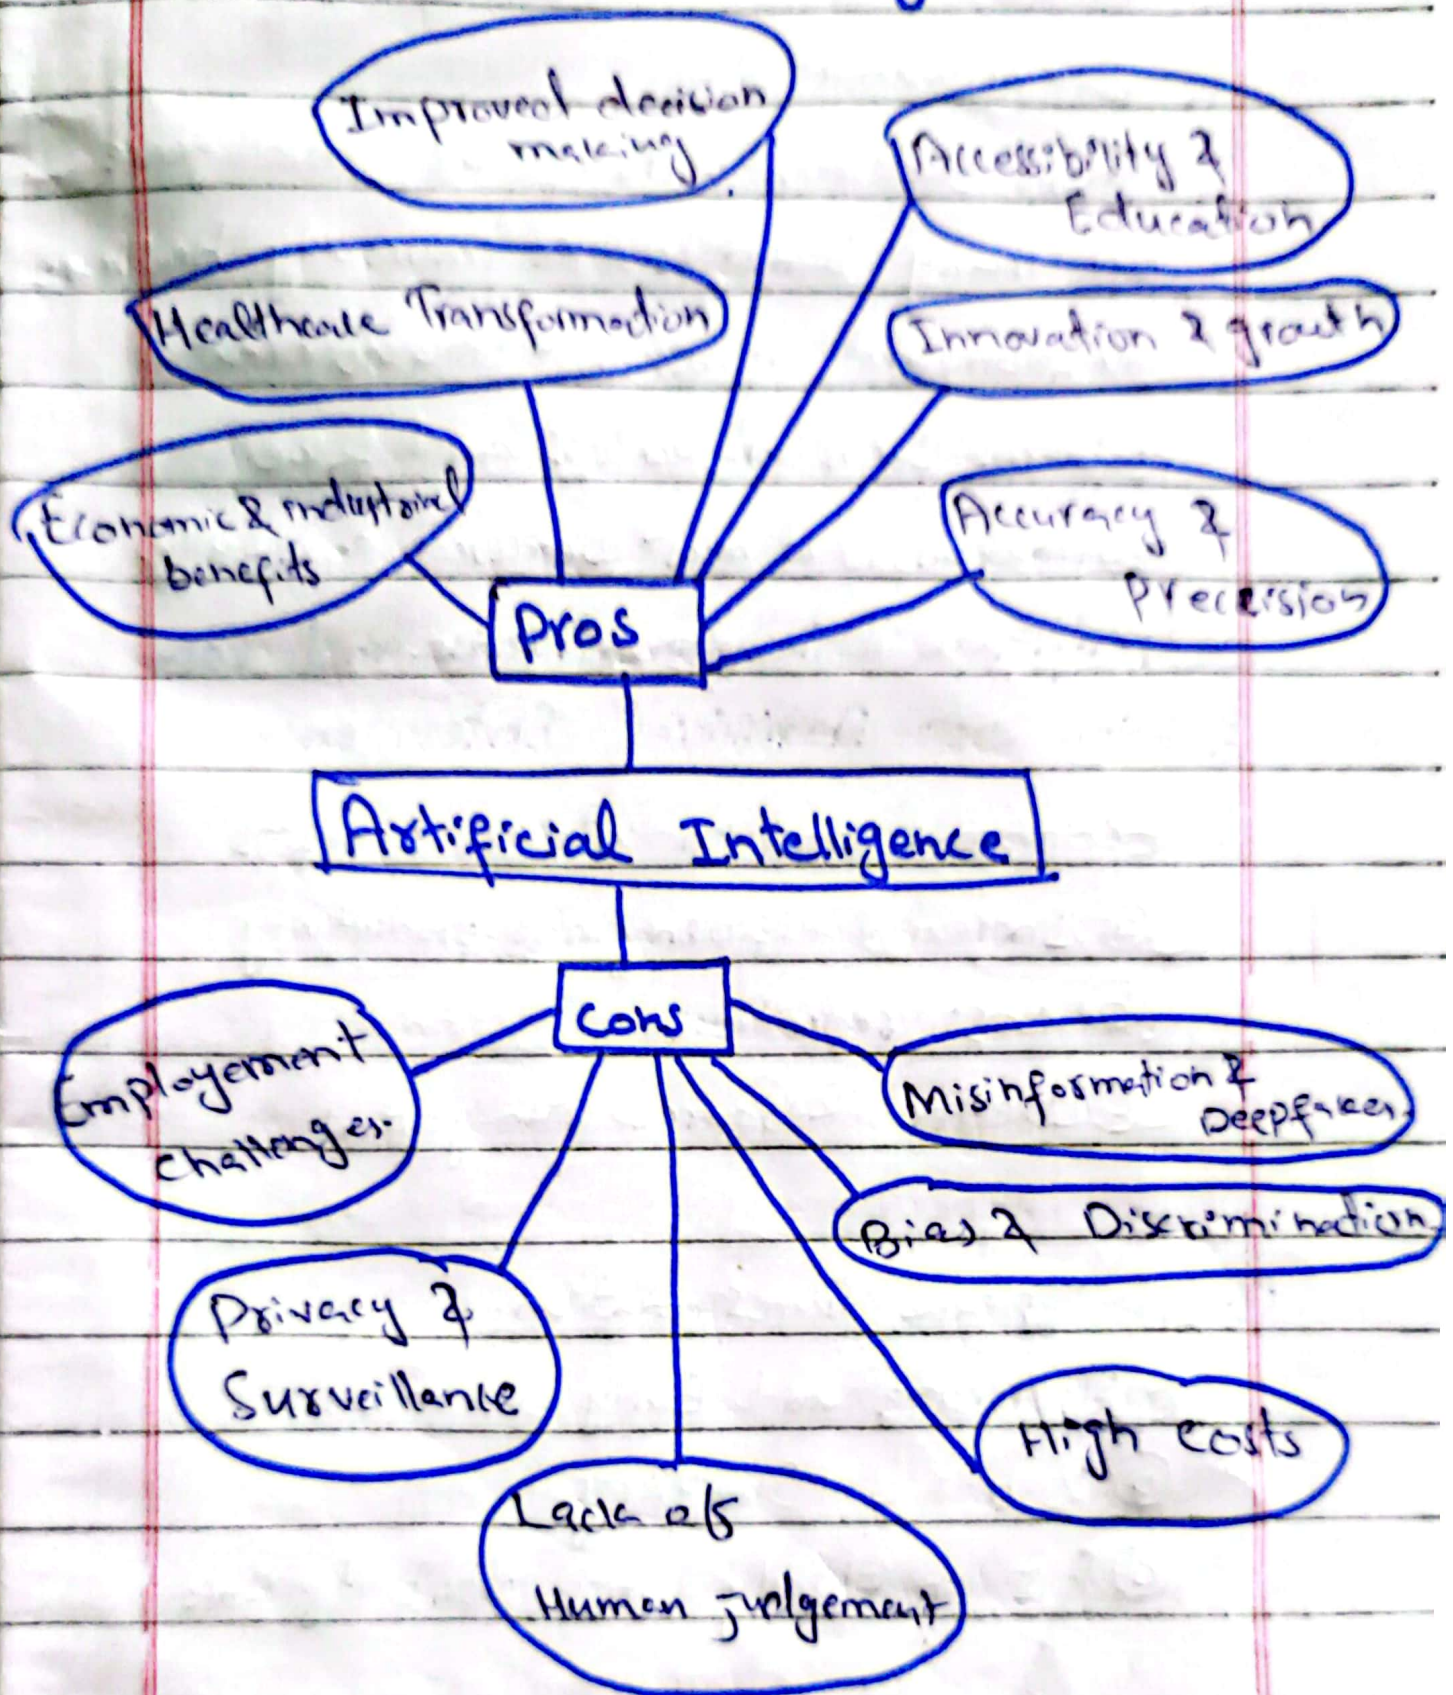 Improved decision
making
Accessibility &
Education
Healthcare Transformation
Innovation & growth
Economic & industrial
benefits
Accuracy &
Precision
Pros
Artificial Intelligence
Cons
Employement
challenges.
Misinformation &
Deepfakes.
Bias & Discrimination
Privacy &
Surveillance
High costs
Lack of
Human judgement